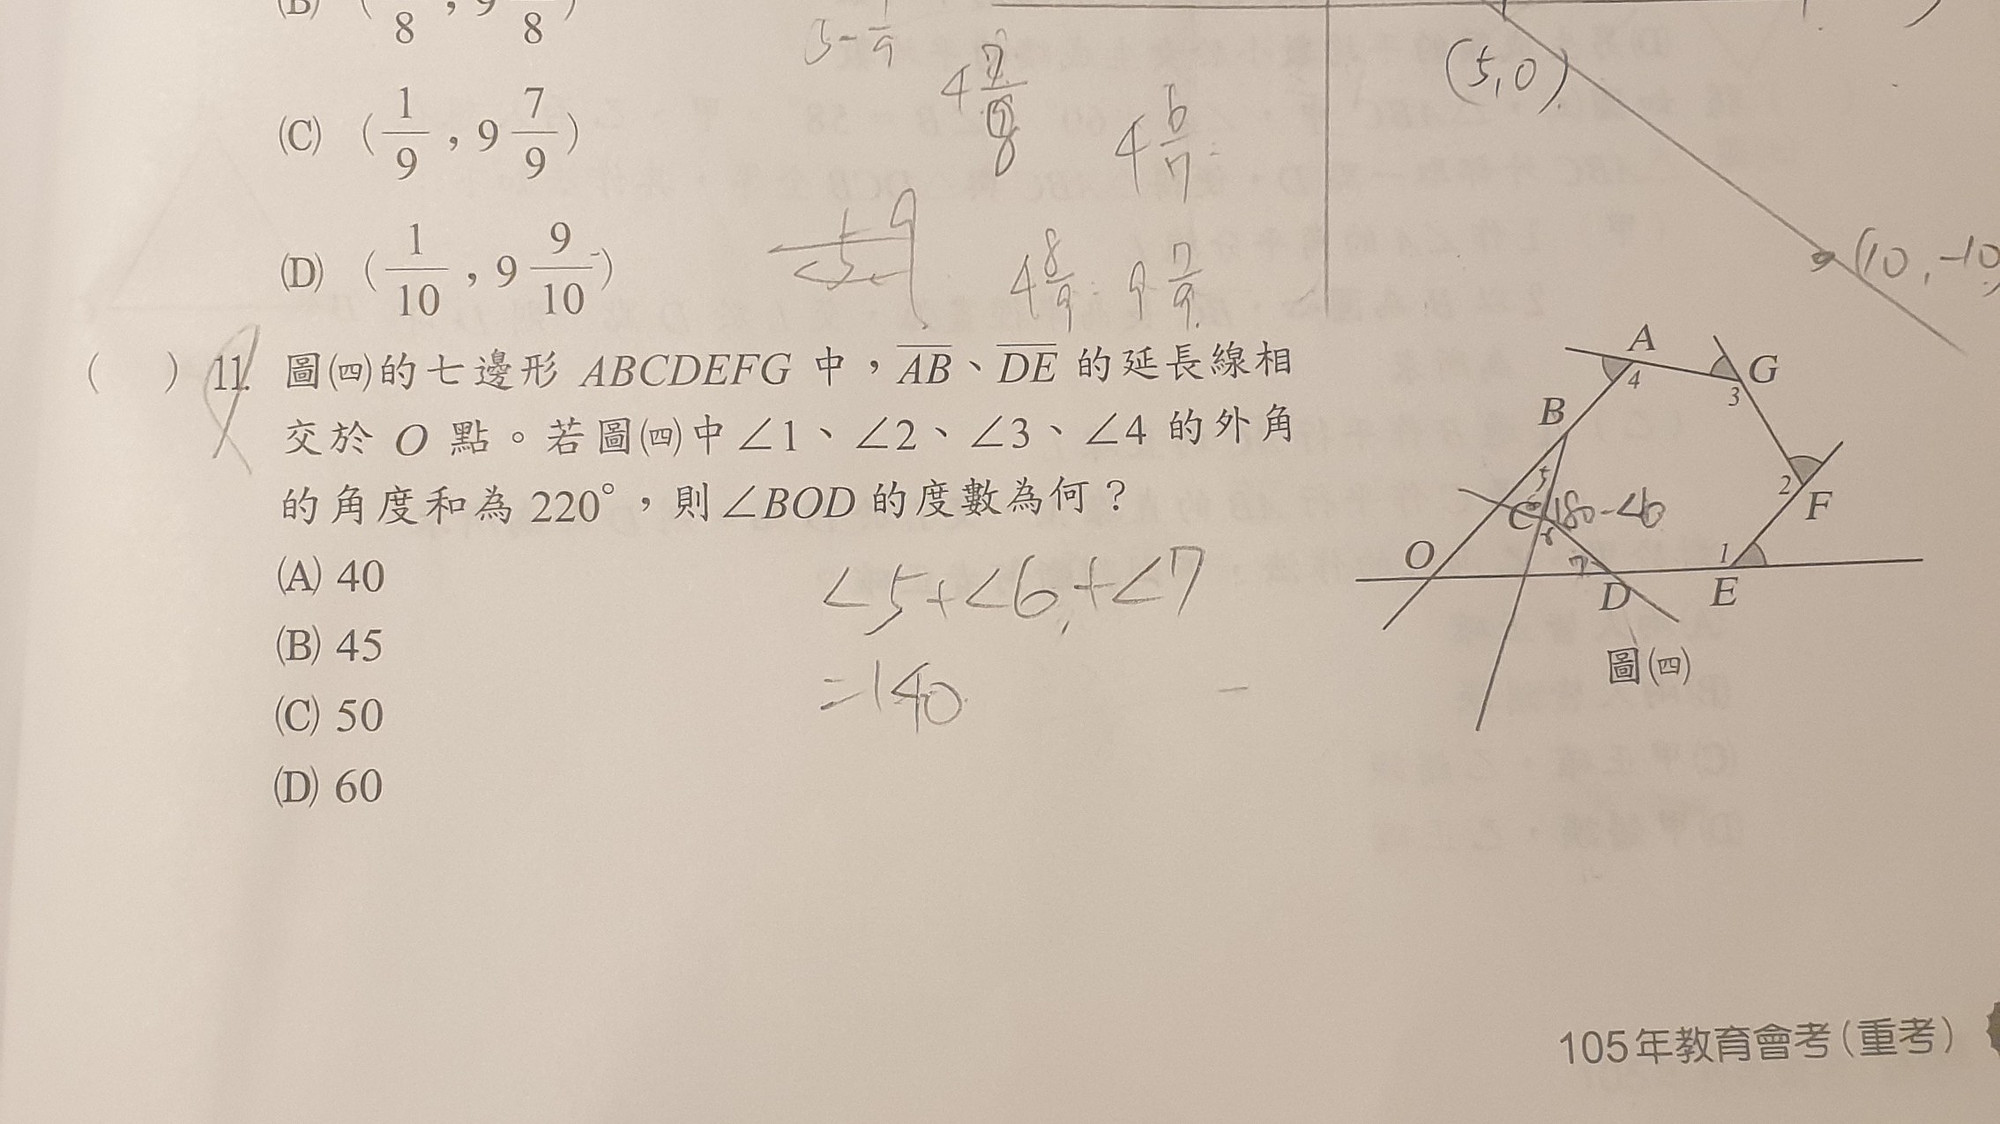 (B) ( /8 , 9 /8 )
(C) ( 1/9 , 9 7/9 )
(D) ( 1/10 , 9 9/10 )
4 6/7
4 8/9 9 7/9
(5,0)
(10,-10)
( ) 11. 圖(四)的七邊形 ABCDEFG 中，AB、DE 的延長線相
交於 O 點。若圖(四)中∠1、∠2、∠3、∠4 的外角
的角度和為 220°，則∠BOD 的度數為何？
(A) 40
(B) 45
(C) 50
(D) 60
∠5+∠6+∠7
=140
A
G
4
3
B
5
2
F
C
180-∠6
6
O
7
1
D
E
圖(四)
105年教育會考(重考)